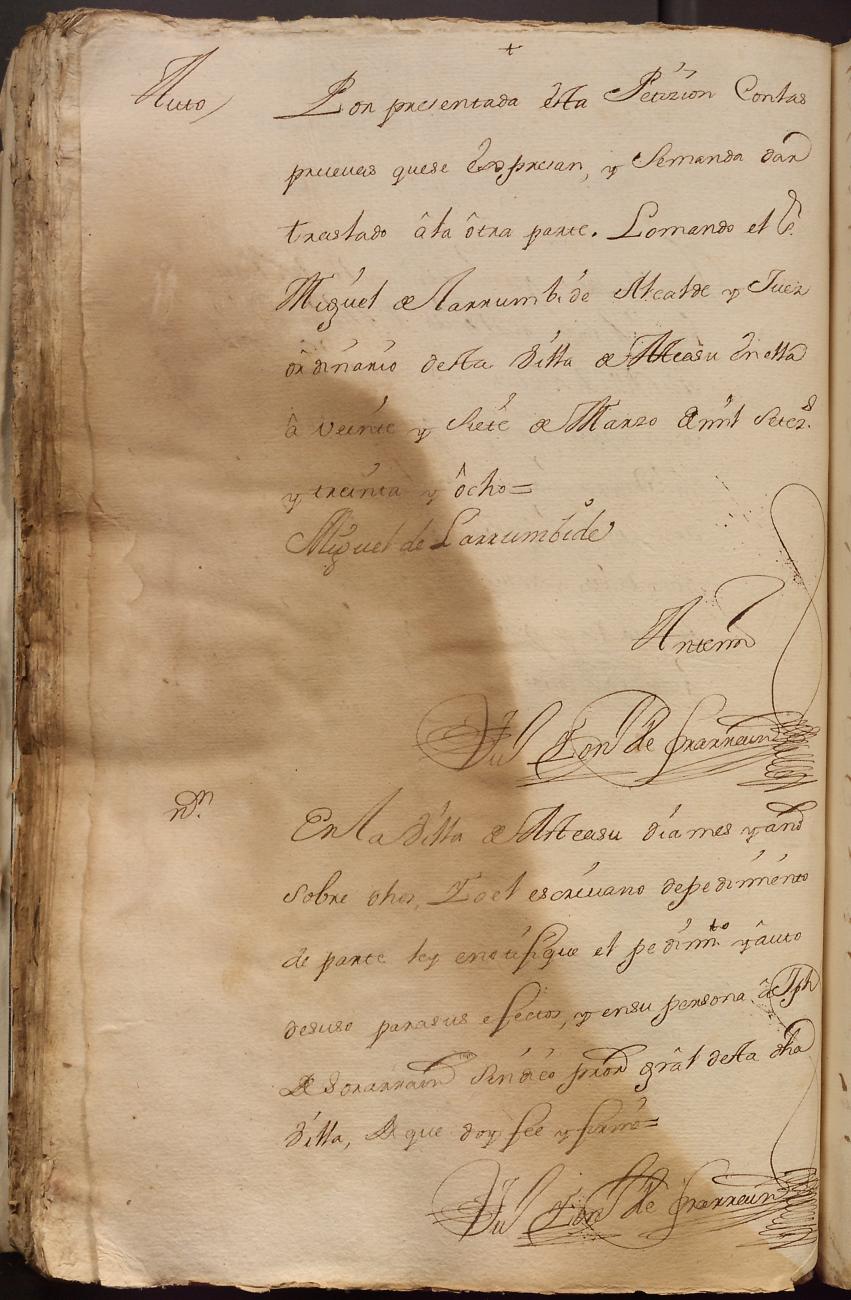 +
Auto / Por presentada êsta Petizion Conlas
pruevas quese Expresan, y Semanda dar
traslado âla ôtra parte. Lomando el S.r
Miguel de Larrumbide Alcalde y Juez
ordinario desta Villa de Alteasu Enella
â veinte y Siete de Marzo de mil Setez.s
y treinta y ôcho=
Miguel de Larrumbide
Antemi
de Irarrain
n.on
En la Villa de Alteasu dia mes y año
sobre dhos, Yo el escrivano depedimento
de parte ley enotifique el pedim.to y auto
desuso parasus efectos, y ensu persona â Jph
De Sorarrain Sindico pror grâl desta dha
Villa, De que doy fee y firmo=
de Irarrain